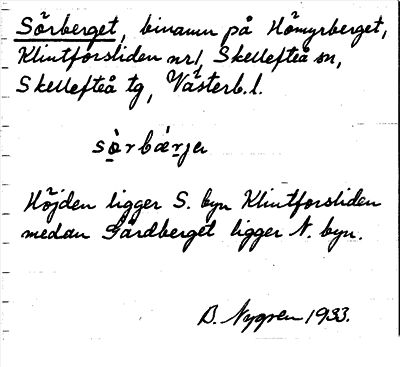 Sörberget, binamn på Hömyrberget,
Klintforsliden nr 1, Skellefteå sn,
Skellefteå tg, Västerb. l.
sòrbærje
Höjden ligger S. byn Klintforsliden
medan Gårdberget ligger N. byn.
B. Nygren 1933.